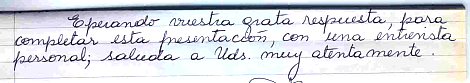 Esperando vuestra grata respuesta, para
completar esta presentación, con una entrevista
personal; saluda a Uds. muy atentamente.